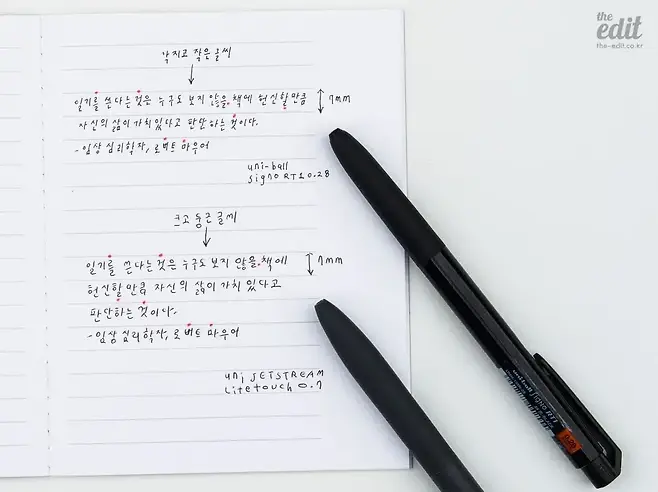 the
edit
the-edit.co.kr
각지고 작은 글씨
일기를 쓴다는 것은 누구도 보지 않을 책에 헌신할 만큼
7mm
자신의 삶이 가치 있다고 판단하는 것이다.
- 임상 심리학자, 로버트 마우어
uni-ball
signo RT1 0.28
크고 둥근 글씨
일기를 쓴다는 것은 누구도 보지 않을 책에
7mm
헌신할 만큼 자신의 삶이 가치 있다고
판단하는 것이다.
- 임상 심리학자, 로버트 마우어
uni JETSTREAM
Lite touch 0.7